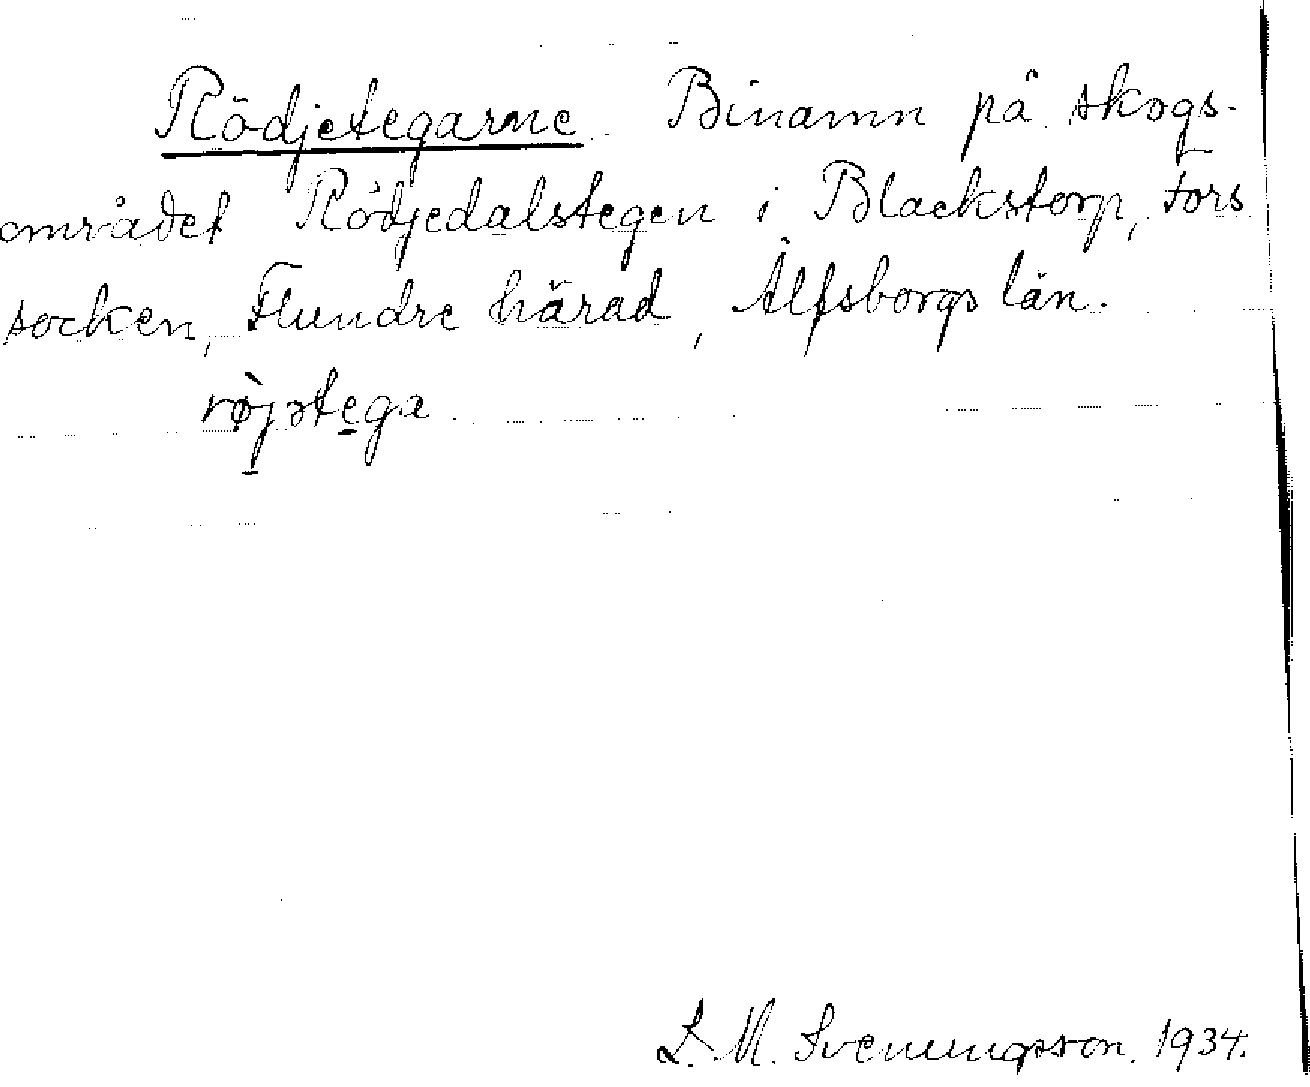 Rödjetegarne. Binamn på skogs-
området Rödjedalstegen i Blackstorp, Fors
socken, Flundre härad, Älfsborgs län.
röjətega
L. M. Svenungsson. 1934.